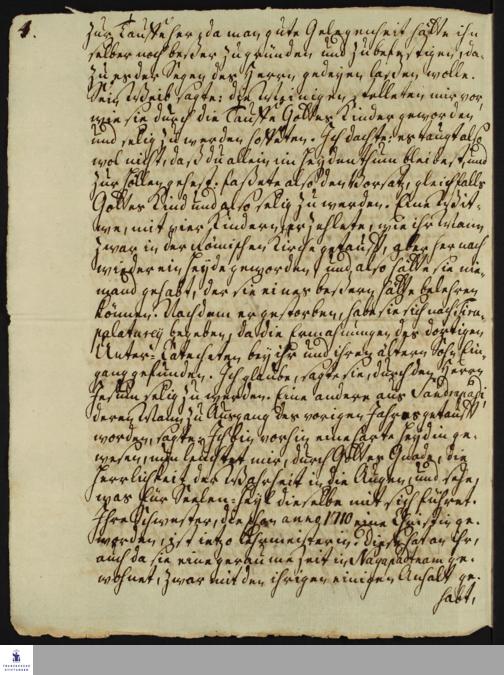 4.
zur Tauffe her, da man gute Gelegenheit hätte ihn
selber noch beßer zu gründen und zu befestigen, da-
zu er der Segen des Herrn gedeyen laßen wolle.
Sein Weib sagte: die Meinigen stelleten mir vor,
wie sie durch die Tauffe Gottes Kinder geworden
und selig zu werden hoffeten. Ich dachte: es taugt also
wol nicht, daß du allein im Heydenthum bleibest, und
zur Höllen gehest. faßete also den Vorsatz, gleichfalls
Gottes Kind und also selig zu werden. Eine Wit-
we, mit vier Kindern, erzehlete, wie ihr Mann
zwar in der Römischen Kirche getaufft, aber hernach
wieder ein Heyde geworden, und also hätte sie nie-
mand gehabt, der sie eines beßern hätte belehren
können. Nachdem er gestorben, habe sie sich nach
begeben, da die Ermahnungen des dortigen
Unter-Catecheten bey ihr und ihrem ältern Sohn Ein-
gang gefunden. Ich glaube, sagte sie, durch den Herrn
Jesum selig zu werden. Eine andere aus
deren Mann zu Ausgang des vorigen Jahres getaufft
worden, sagte: Ich bin vorhin eine harte Heydin ge-
wesen, nun leuchtet mir, durch Gottes Gnade, die
Herrlichkeit der Wahrheit in die Augen, und sehe,
was für Seelen-Heyl dieselbe mit sich führet.
Ihre Schwester, die schon anno 1710 eine Christin ge-
worden, ist ietzo Lehrmeisterin. Diese hat an ihr,
auch da sie eine geraume Zeit in Nagapatnam ge-
wohnet, zwar mit den ihrigen einigen Anhalt ge-
habt,
FRANCKESCHE
STIFTUNGEN